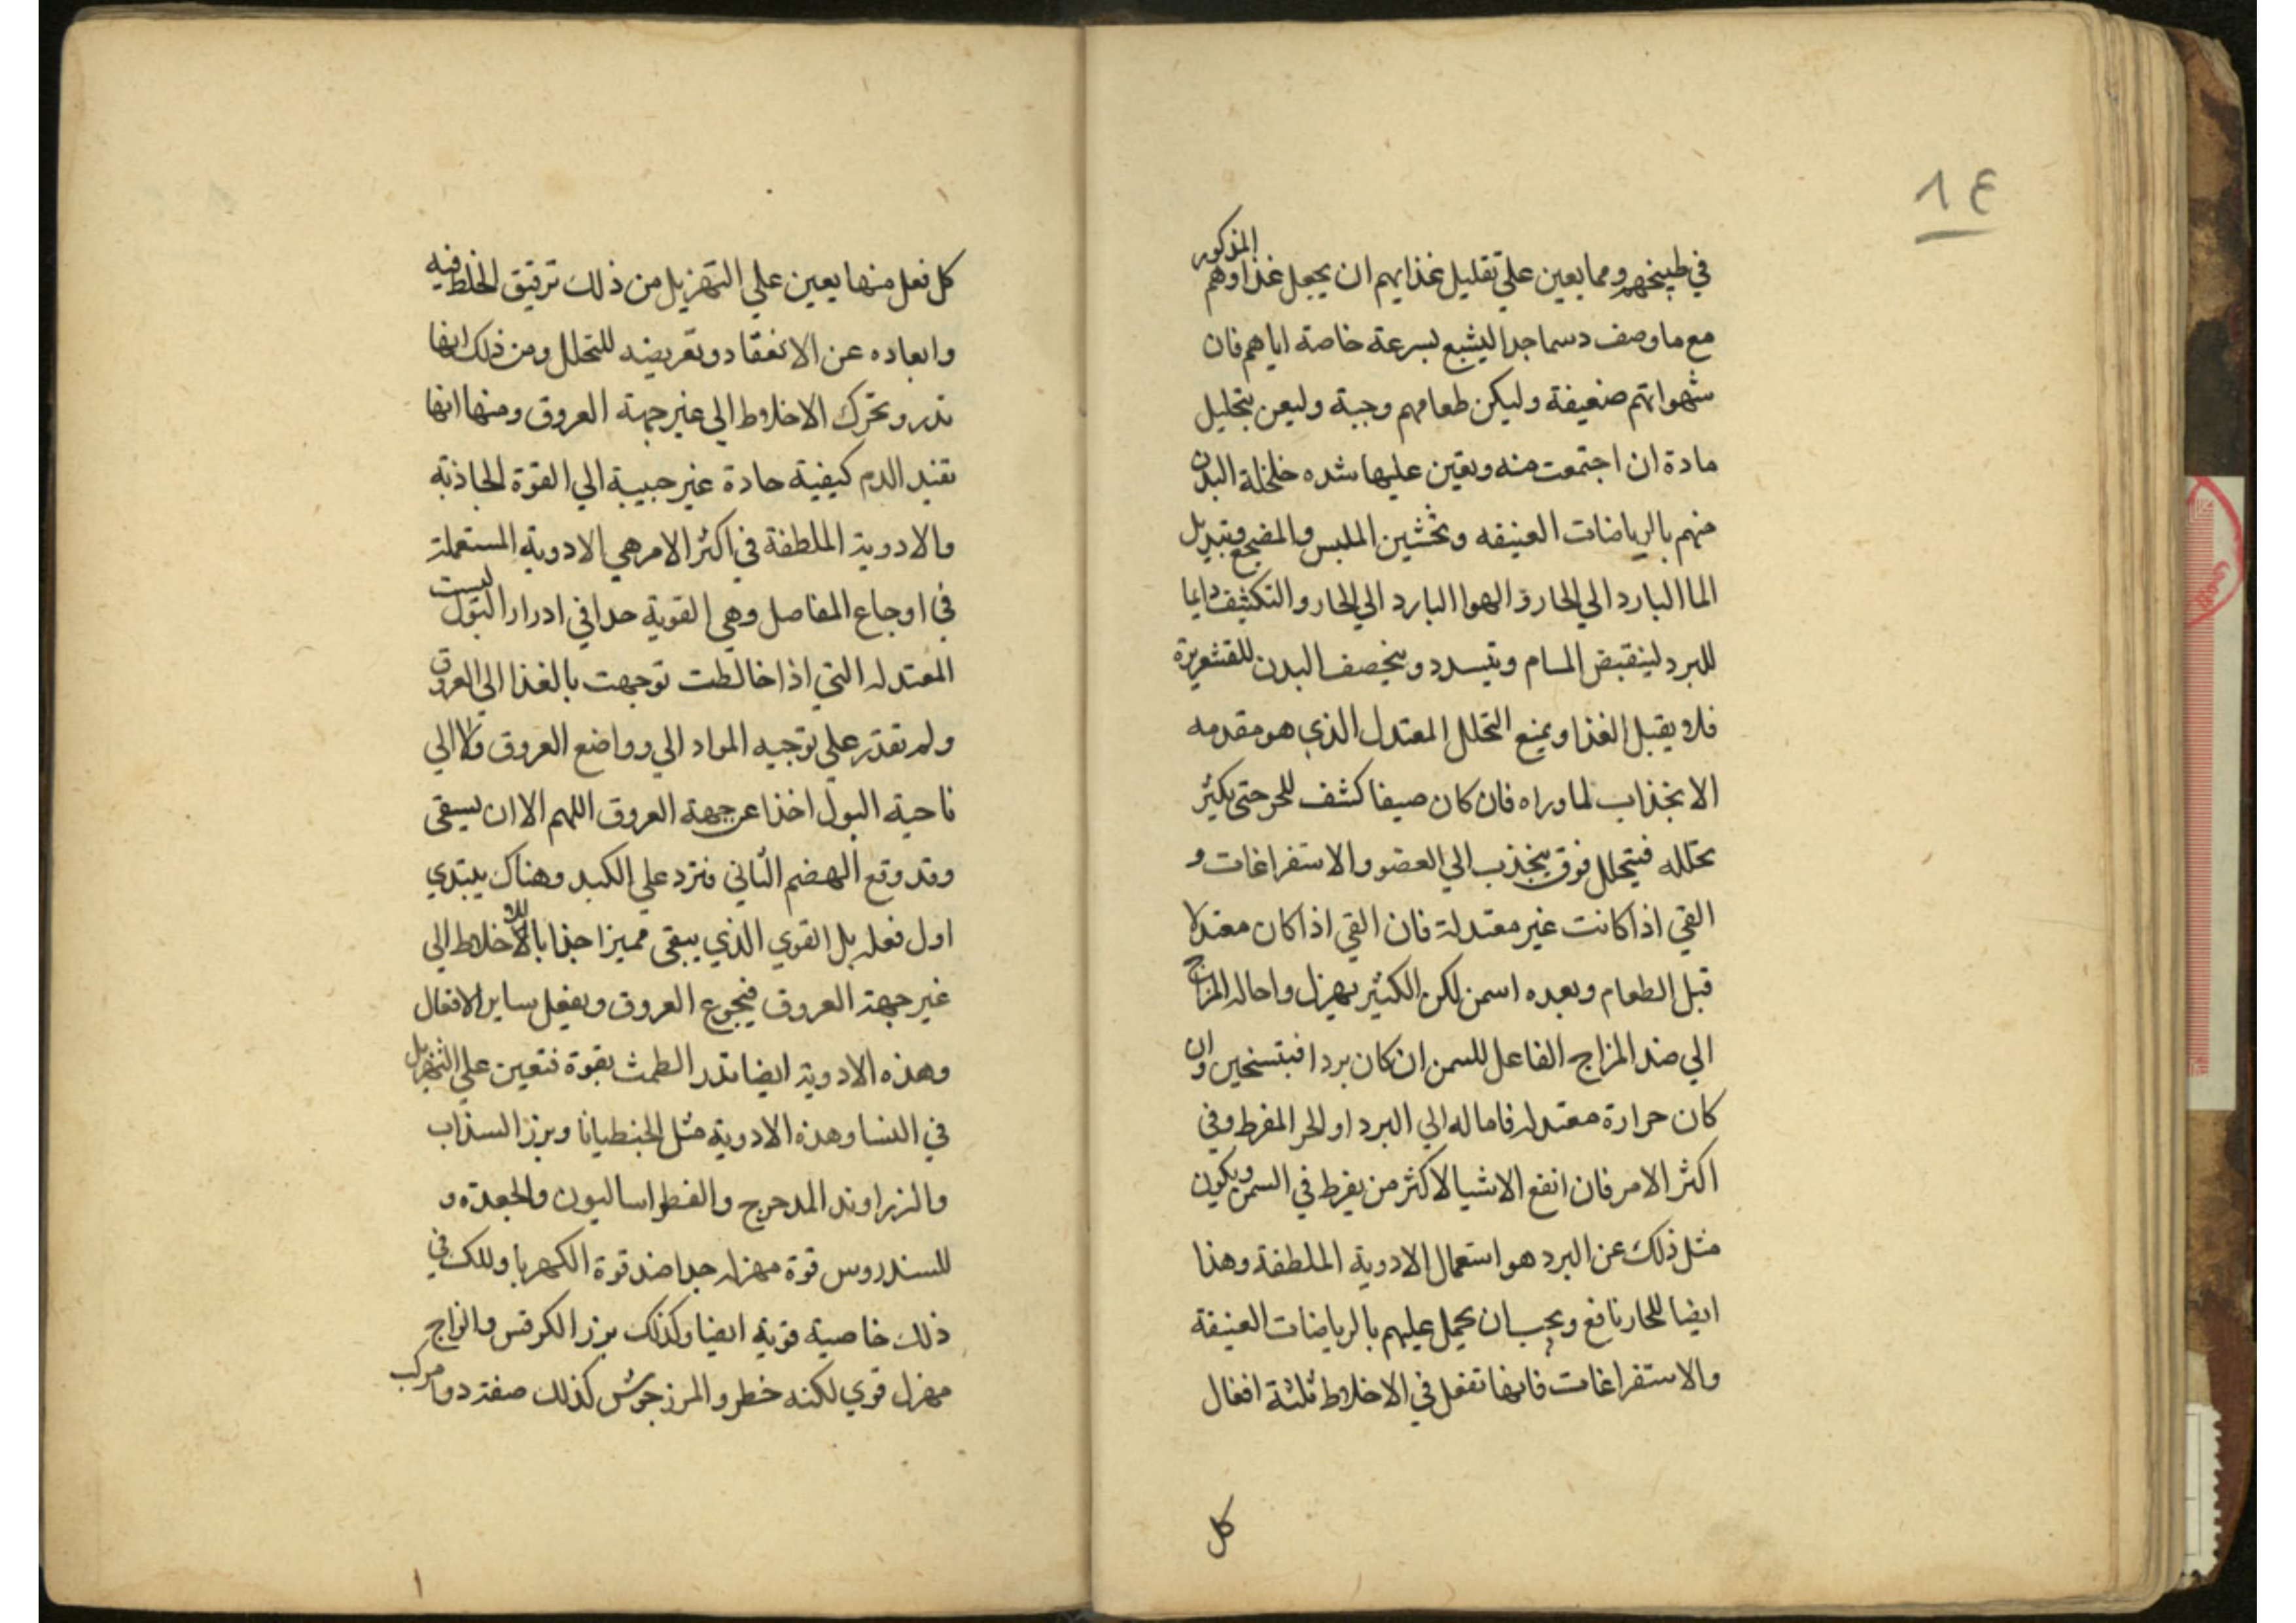 ١٤
المذكور
في طبيخهم ومما يعين علي تقليل غذايهم ان يجعل غذاوهم
مع ما وصف دسما جدا ليشبع بسرعة خاصة اياهم فان
شهواتهم ضعيفة وليكن طعامهم وجبة وليعن بتحليل
مادة ان اجتمعت منه ويعين عليها شده خلخلة البدن
منهم بالرياضات العنيفه وتخشين الملبس والمضجع وتبديل
الما البارد الي الحار والهوا البارد الي الحار والتكشف دايما
للبرد لينقبض المسام وتسدد ويخصف البدن للقشعريرة
فلا يقبل الغذا ويمنع التحلل المعتدل الذي هو مقدمه
الانجذاب لما وراه فان كان صيفا كشف للحر حتى يكثر
تحلله فيتحلل فوق ينجذب الي العضو والاستفراغات و
القي اذا كانت غير معتدلة فان القي اذا كان معتدلا
قبل الطعام وبعده اسمن لكن الكثير يهزل واحاله المزاج
الي ضد المزاج الفاعل للسمن ان كان بردا فبتسخين وان
كان حرارة معتدله فاماله الي البرد او الحر المفرط وفي
اكثر الامر فان انفع الاشيا لاكثر من يفرط في السمن ويكون
مثل ذلك عن البرد هو استعمال الادوية الملطفة وهذا
ايضا للحار نافع ويجب ان يحمل عليهم بالرياضات العنيفة
والاستفراغات فانها تفعل في الاخلاط ثلثة افعال
كل
كل فعل منها يعين علي التهزيل من ذلك ترقيق الخلط فيه
وابعاده عن الانعقاد وتعريضه للتحلل ومن ذلك انها
تدر وتحرك الاخلاط الي غير جهة العروق ومنها انها
تفيد الدم كيفية حادة غير حبيبة الي القوة الجاذبة
والادوية الملطفة في اكثر الامر هي الادوية المستعملة
في اوجاع المفاصل وهي القوية جدا في ادرار البول ليست
المعتدله التي اذا خالطت توجهت بالغذا الي العروق
ولم تقدر علي توجيه المواد الي وواضع العروق ولا الي
ناحية البول اخذا عن جهة العروق اللهم الا ان يسقى
وقد وقع الهضم الثاني فترد علي الكبد وهناك يبتدي
اول فعله بل القوي الذي يبقى مميزا جذابا للاخلاط الي
غير جهة العروق فيجوع العروق ويفعل ساير الافعال
وهذه الادوية ايضا تدر الطمث بقوة فتعين علي التهزيل
في النسا وهذه الادوية مثل الجنطيانا وبزر السذاب
والزراوند المدحرج والفطراساليون والجعدة و
للسندروس قوة مهزله جدا ضد قوة الكهربا وللك في
ذلك خاصية قوية ايضا وكذلك بزر الكرفس والزاج
مهزل قوي لكنه خطر والمرزجوش كذلك صفة دوا مركب